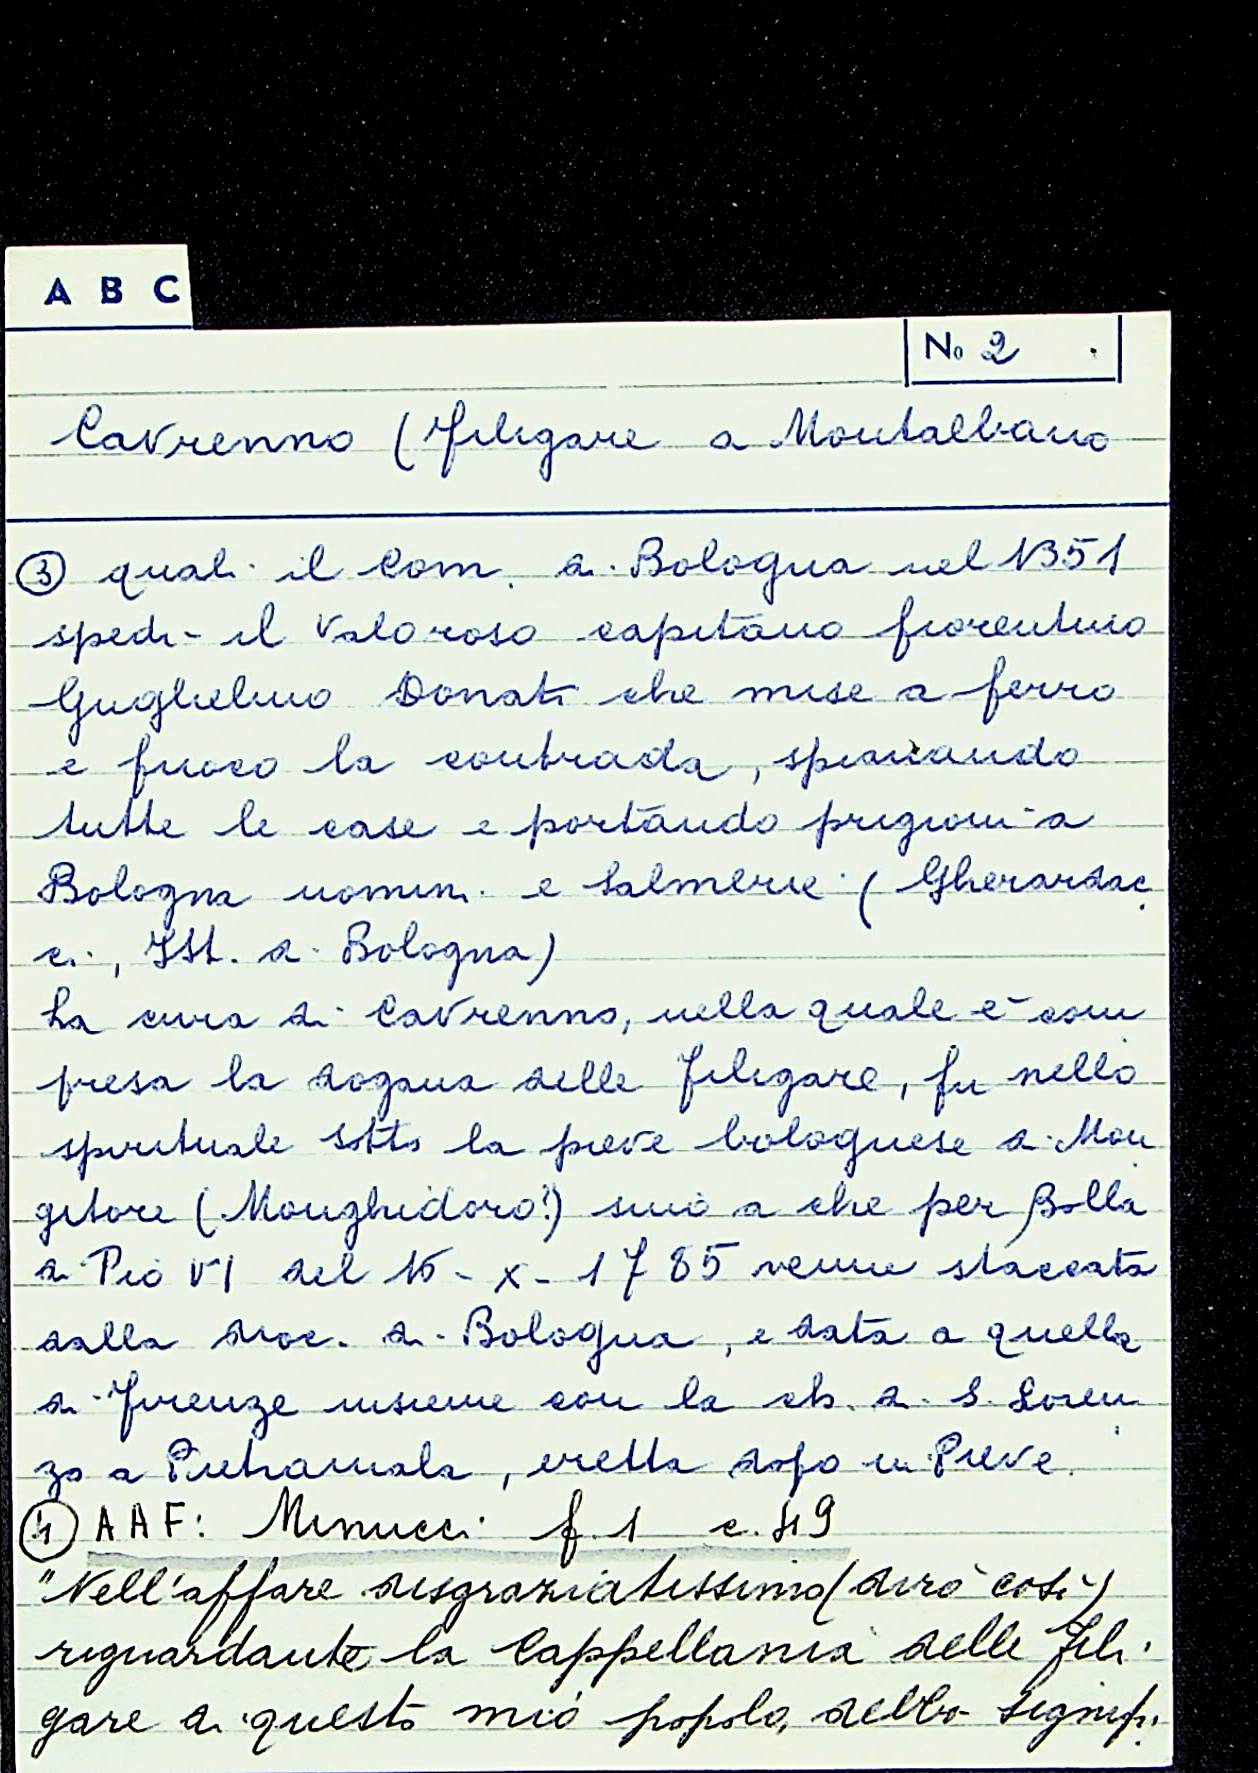 A B C
No 2
Cavrenno (Filigare a Montalbano
③ quali il Com. di Bologna nel 1351
spedì il valoroso capitano fiorentino
Guglielmo Donati che mise a ferro
e fuoco la contrada, spianando
tutte le case e portando prigioni a
Bologna uomini e salmerie (Gherardac
ci, Ist. di Bologna)
La cura di Cavrenno, nella quale è com
presa la dogana delle Filigare, fu nello
spirituale sotto la pieve bolognese di Mon
gitore (Monghidoro?) sino a che per Bolla
di Pio VI del -X-1785 venne staccata
dalla dioc. di Bologna, e data a quella
di Firenze insieme con la ch. di S. Loren
zo a Pietramala, eretta dopo in Pieve.
④ AAF: Minucci f. 1 c. 49
"Nell'affare disgraziatissimo (dirò così)
riguardante la Cappellania delle Fili
gare di questo mio popolo, debbo signifi